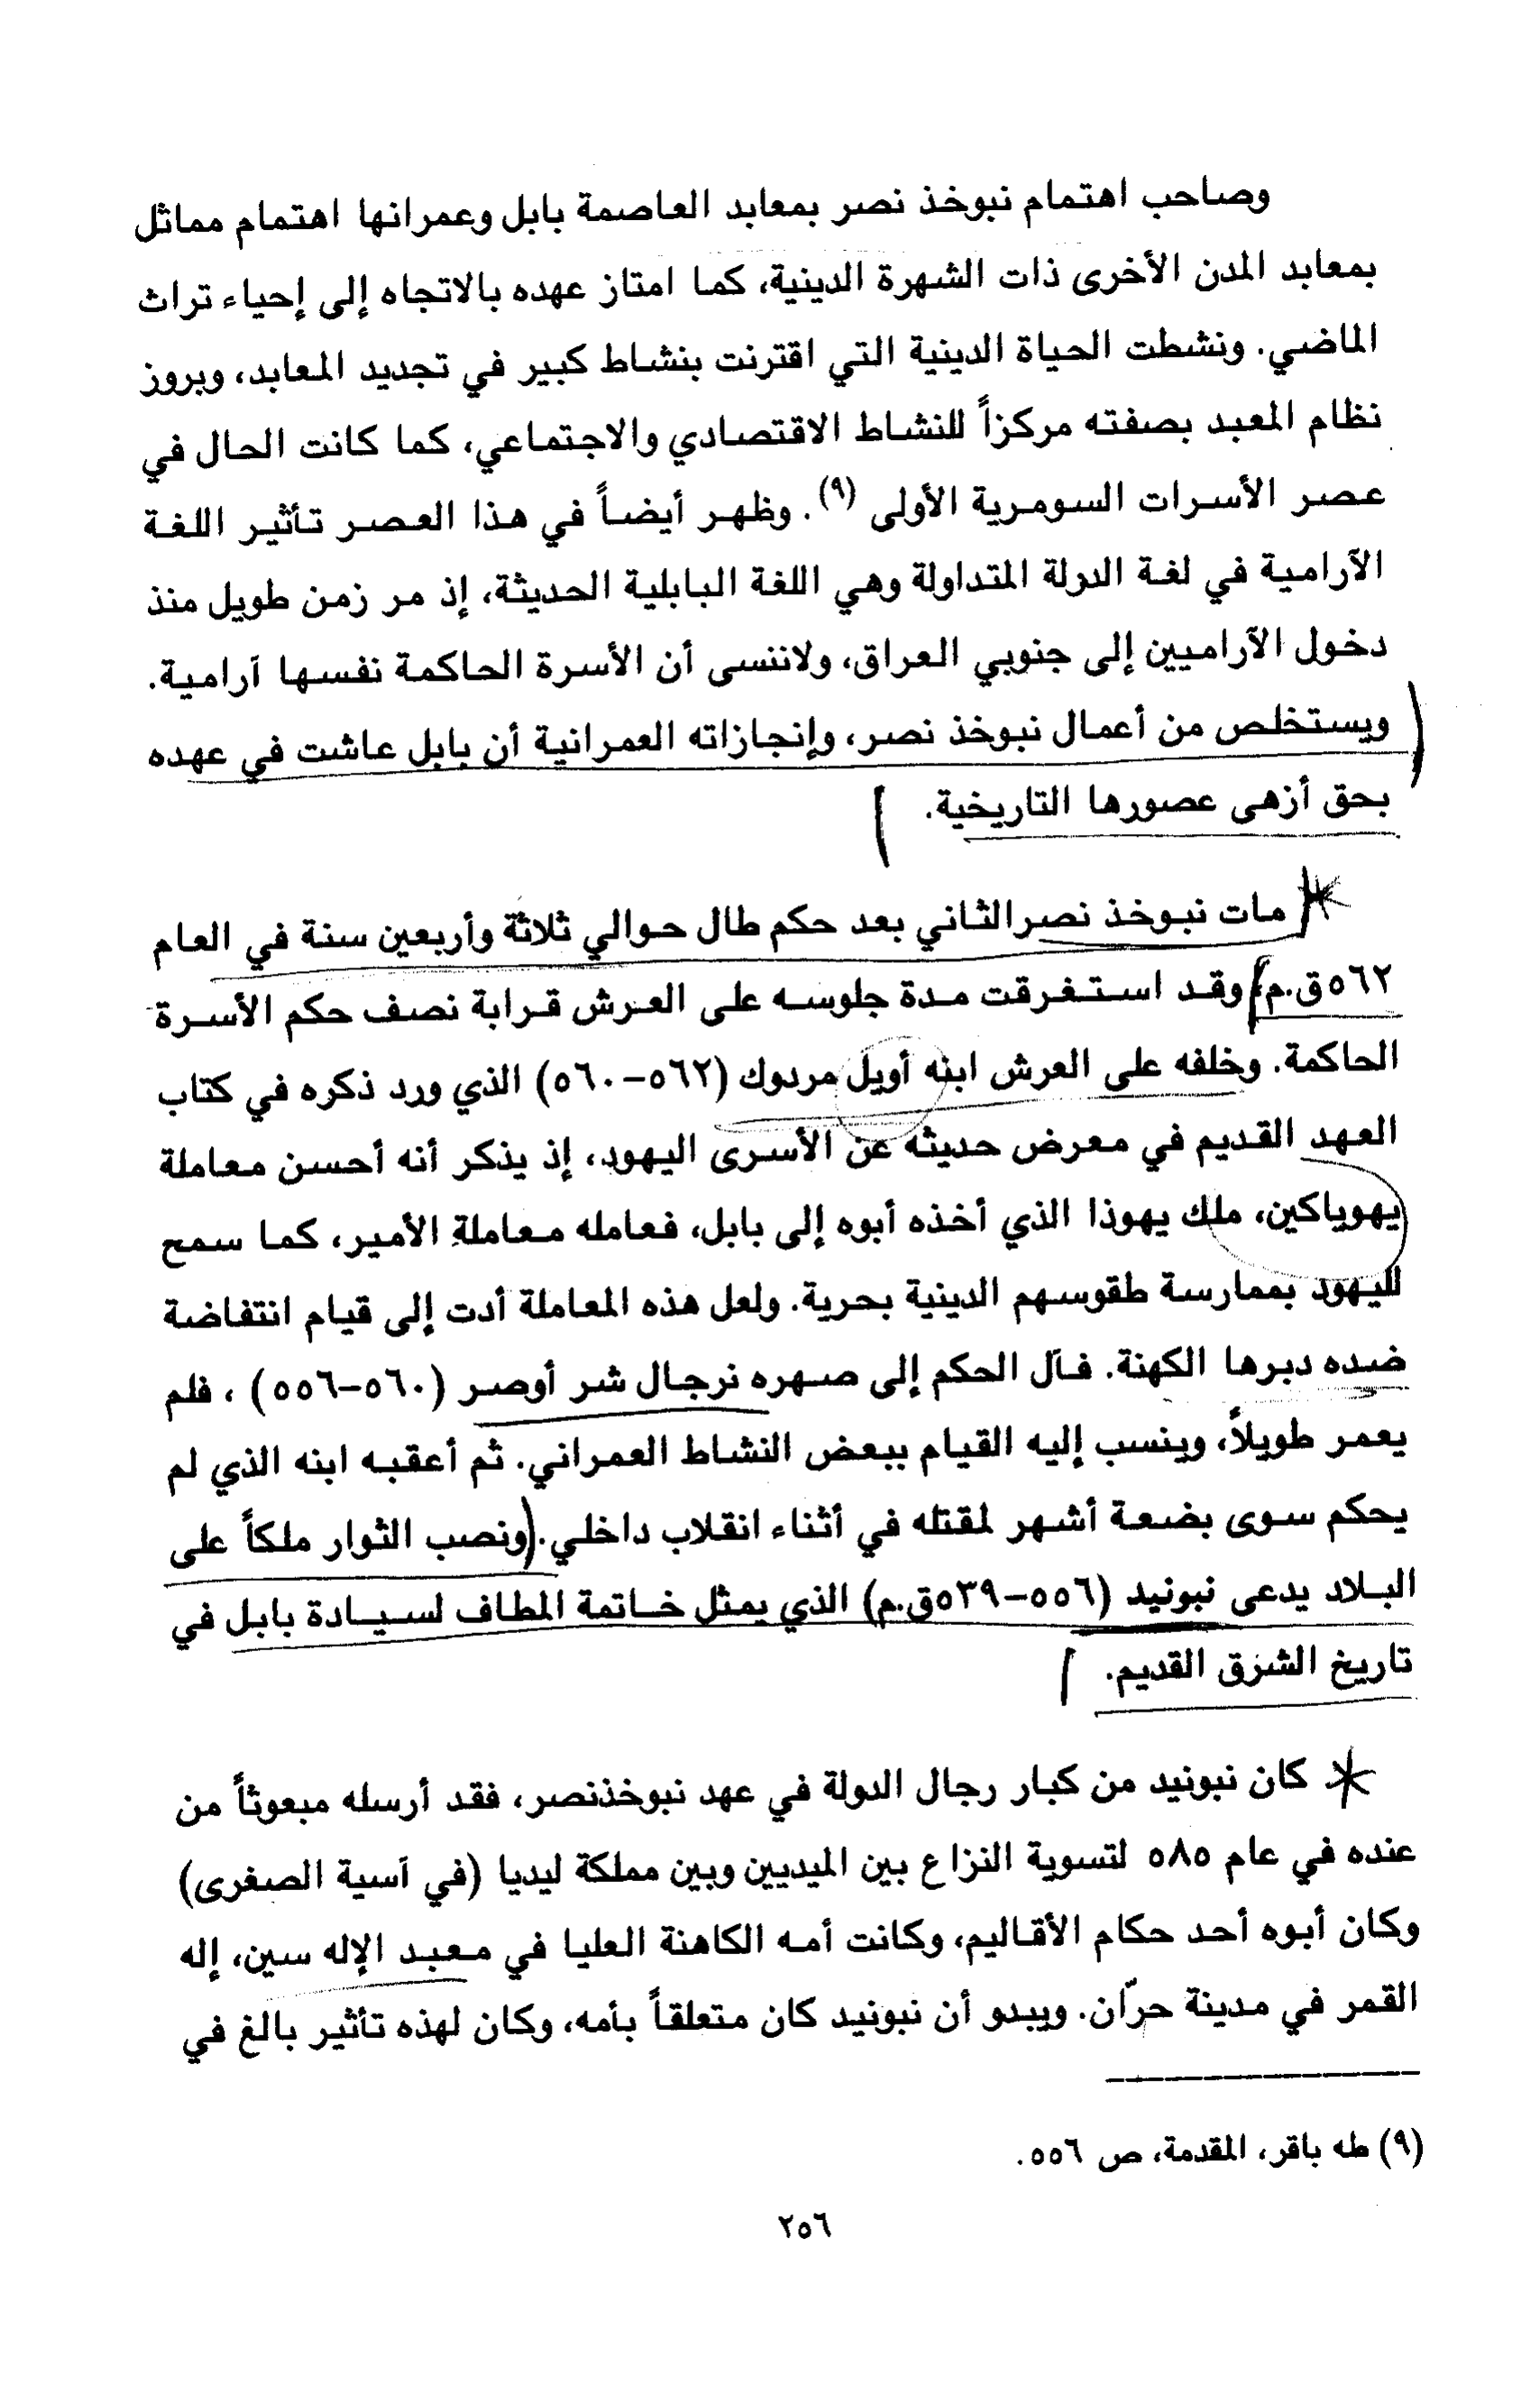 وصاحب اهتمام نبوخذ نصر بمعابد العاصمة بابل وعمرانها اهتمام مماثل
بمعابد المدن الأخرى ذات الشهرة الدينية، كما امتاز عهده بالاتجاه إلى إحياء تراث
الماضي. ونشطت الحياة الدينية التي اقترنت بنشاط كبير في تجديد المعابد، وبروز
نظام المعبد بصفته مركزاً للنشاط الاقتصادي والاجتماعي، كما كانت الحال في
عصر الأسرات السومرية الأولى (٩). وظهر أيضاً في هذا العصر تأثير اللغة
الآرامية في لغة الدولة المتداولة وهي اللغة البابلية الحديثة، إذ مر زمن طويل منذ
دخول الآراميين إلى جنوبي العراق، ولاننسى أن الأسرة الحاكمة نفسها آرامية.
ويستخلص من أعمال نبوخذ نصر، وإنجازاته العمرانية أن بابل عاشت في عهده
بحق أزهى عصورها التاريخية.
مات نبوخذ نصرالثاني بعد حكم طال حوالي ثلاثة وأربعين سنة في العام
٥٦٢ق.م، وقد استغرقت مدة جلوسه على العرش قرابة نصف حكم الأسرة
الحاكمة. وخلفه على العرش ابنه أويل مردوك (٥٦٢–٥٦٠) الذي ورد ذكره في كتاب
العهد القديم في معرض حديثه عن الأسرى اليهود، إذ يذكر أنه أحسن معاملة
يهوياكين، ملك يهوذا الذي أخذه أبوه إلى بابل، فعامله معاملة الأمير، كما سمح
لليهود بممارسة طقوسهم الدينية بحرية. ولعل هذه المعاملة أدت إلى قيام انتفاضة
ضده دبرها الكهنة. فآل الحكم إلى صهره نرجال شر أوصر (٥٦٠–٥٥٦) ، فلم
يعمر طويلاً، وينسب إليه القيام ببعض النشاط العمراني. ثم أعقبه ابنه الذي لم
يحكم سوى بضعة أشهر لمقتله في أثناء انقلاب داخلي. ونصب الثوار ملكاً على
البلاد يدعى نبونيد (٥٥٦–٥٣٩ق.م) الذي يمثل خاتمة المطاف لسيادة بابل في
تاريخ الشرق القديم.
كان نبونيد من كبار رجال الدولة في عهد نبوخذنصر، فقد أرسله مبعوثاً من
عنده في عام ٥٨٥ لتسوية النزاع بين الميديين وبين مملكة ليديا (في آسية الصغرى)
وكان أبوه أحد حكام الأقاليم، وكانت أمه الكاهنة العليا في معبد الإله سين، إله
القمر في مدينة حرّان. ويبدو أن نبونيد كان متعلقاً بأمه، وكان لهذه تأثير بالغ في
(٩) طه باقر، المقدمة، ص ٥٥٦.
٢٥٦